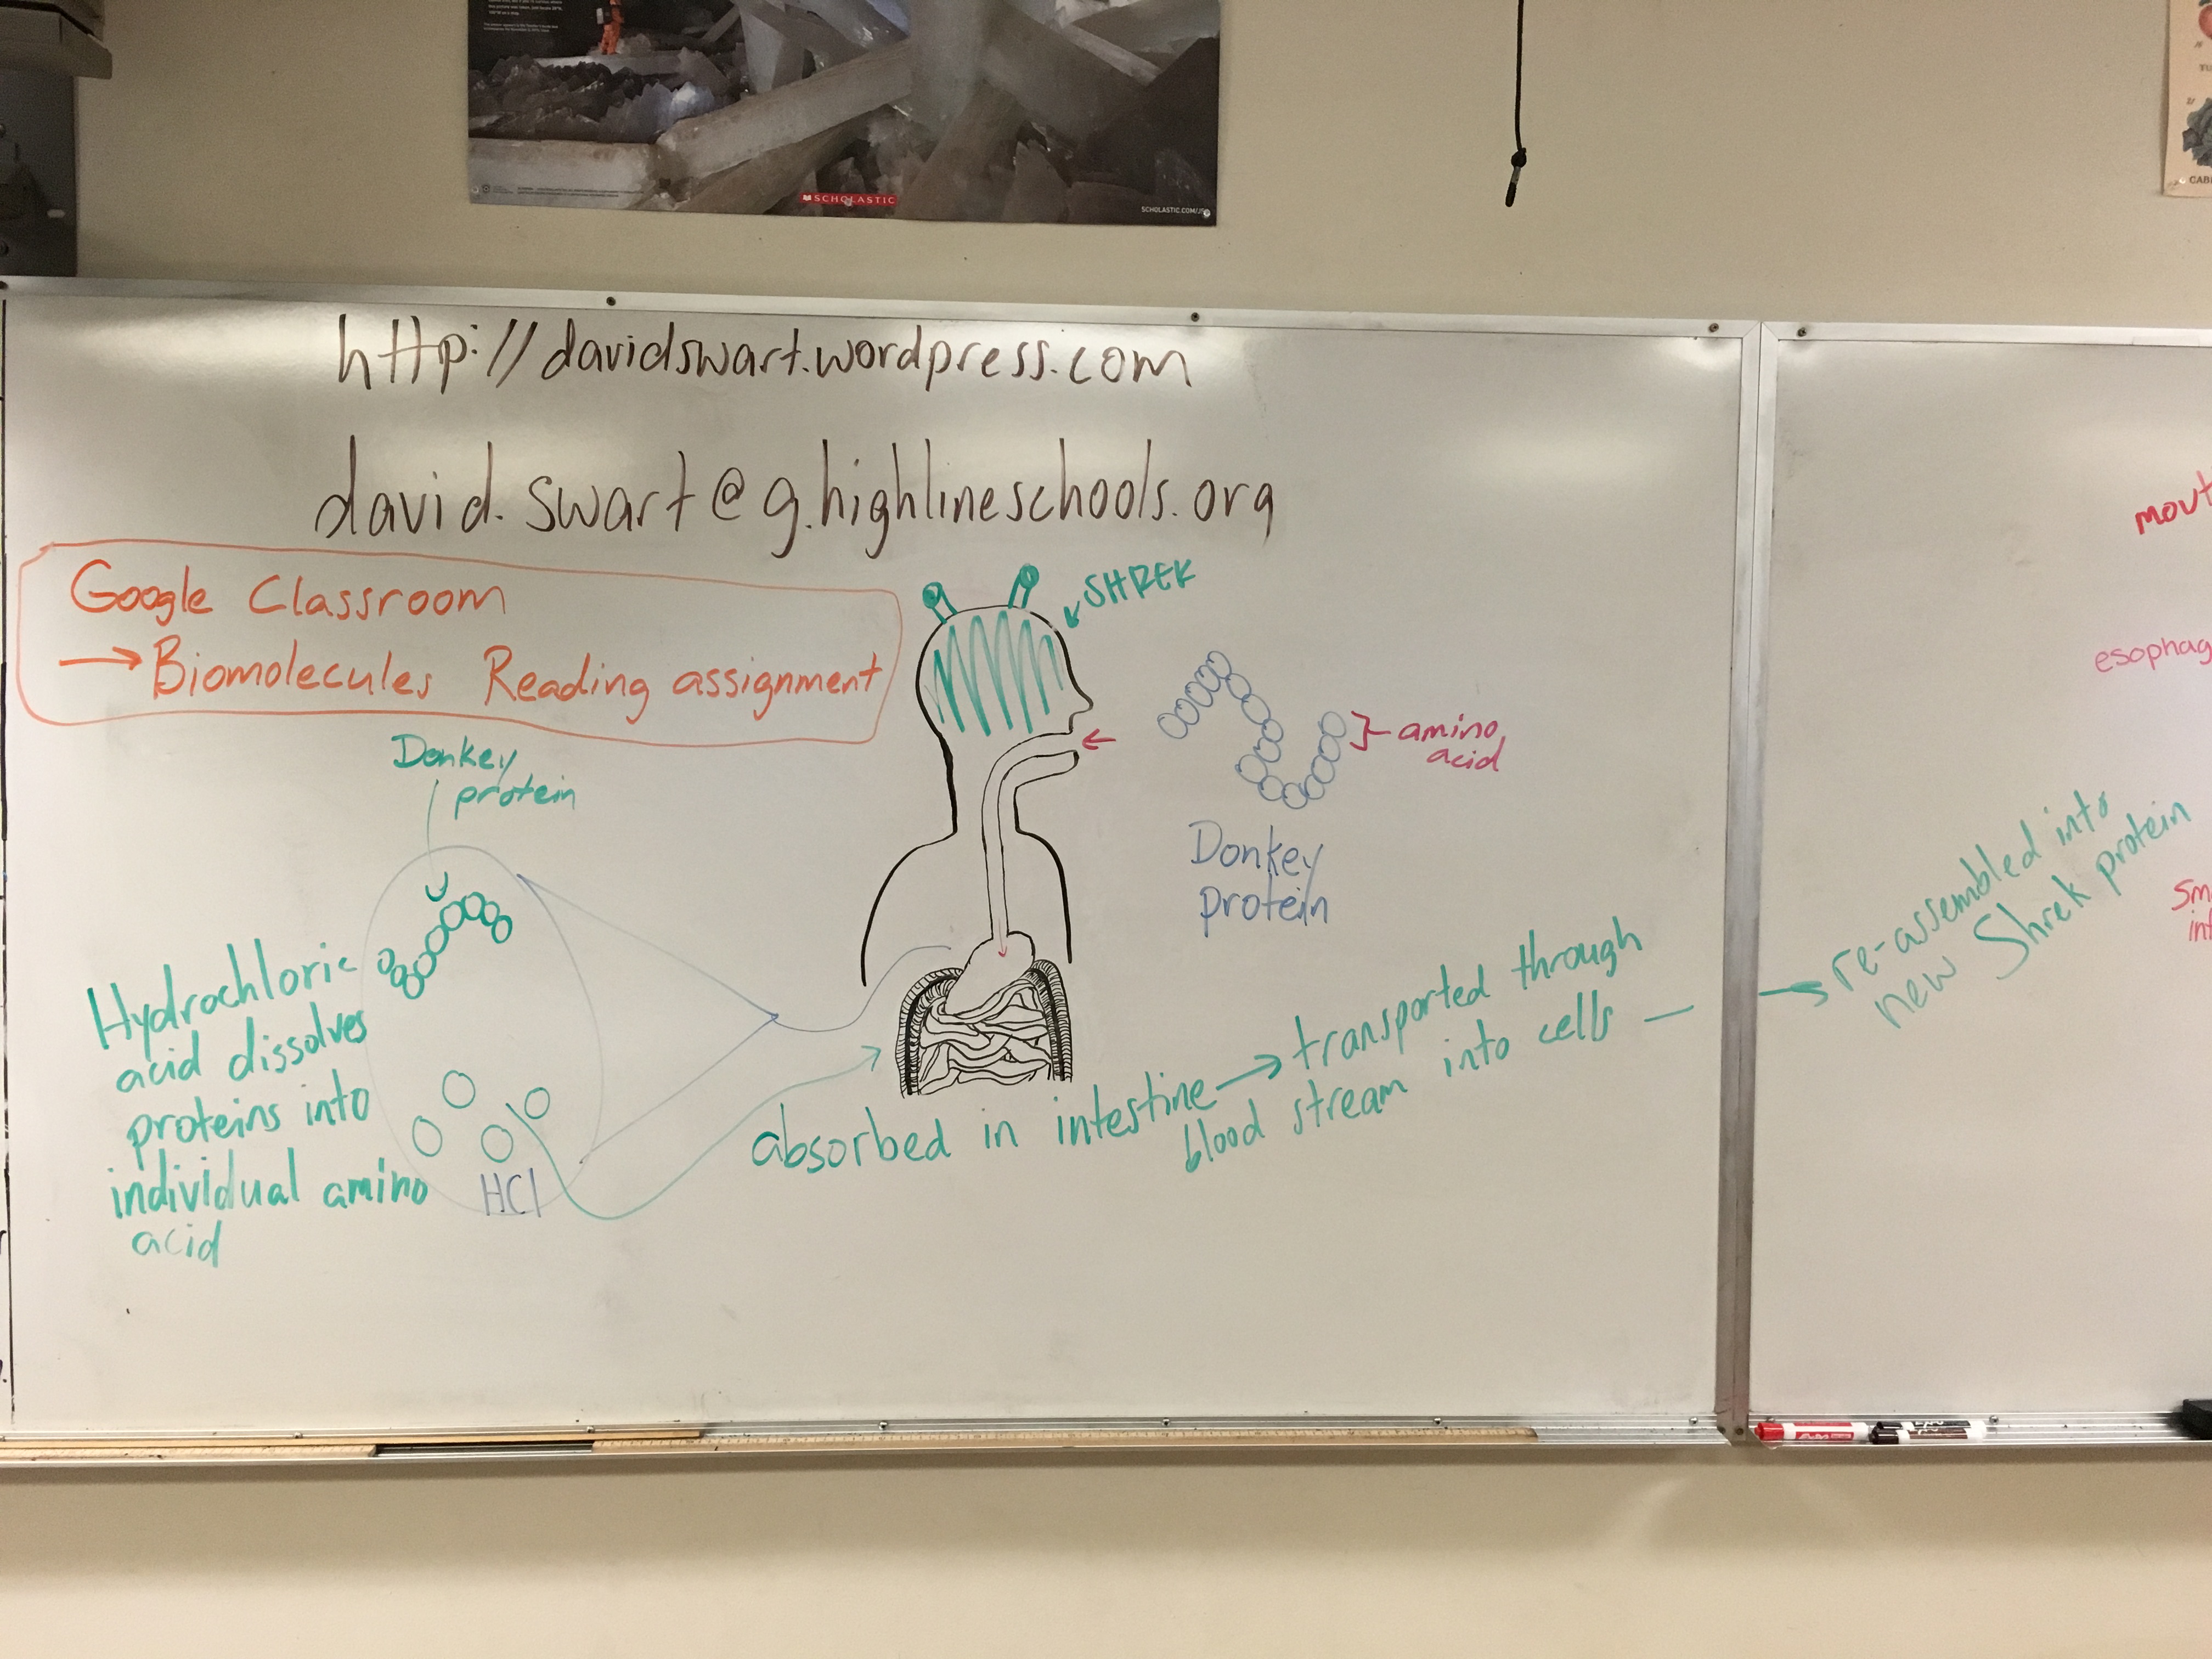 SCHOLASTIC
http://davidswart.wordpress.com
david.swart@g.highlineschools.org
Google Classroom
→ Biomolecules Reading assignment
SHREK
amino
acid
Donkey
protein
Donkey
protein
Hydrochloric
acid dissolves
proteins into
individual amino
acid
HCl
absorbed in intestine → transported through
blood stream into cells —
→ re-assembled into
new Shrek protein
mout
esophag
Sm
int